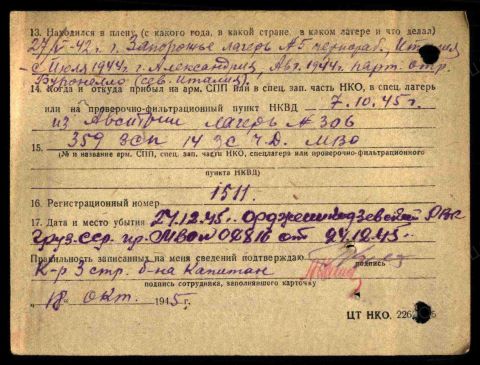 13. Находился в плену, (с какого года, в какой стране, в каком лагере и что делал)
27/V-42 г. г. Запорожье лагерь №5 чернораб., Италия
с Июля 1944 г. г. Александрия, Авг. 1944 г. парт. отр.
Буронелло (сев. Италия).
14. Когда и откуда прибыл на арм. СПП или в спец. зап. часть НКО, в спец. лагерь
или на проверочно-фильтрационный пункт НКВД 7.10.45 г.
из Австрии лагерь №306
15. 359 ЗСП 14 ЗС Ч.Д. МВО
(№ и название арм. СПП, спец. зап. части НКО, спецлагеря или проверочно-фильтрационного
пункта НКВД)
16. Регистрационный номер 1511.
17. Дата и место убытия 27.12.45г. Орджоникидзевский РВК
Груз. ССР пр. МВО № 02816 от 27.12.45г.
Правильность записанных на меня сведений подтверждаю
подпись
К-р 3 стр. б-на Капитан
подпись сотрудника, заполнявшего карточку
„18" окт. 1945 г.
ЦТ НКО. 226